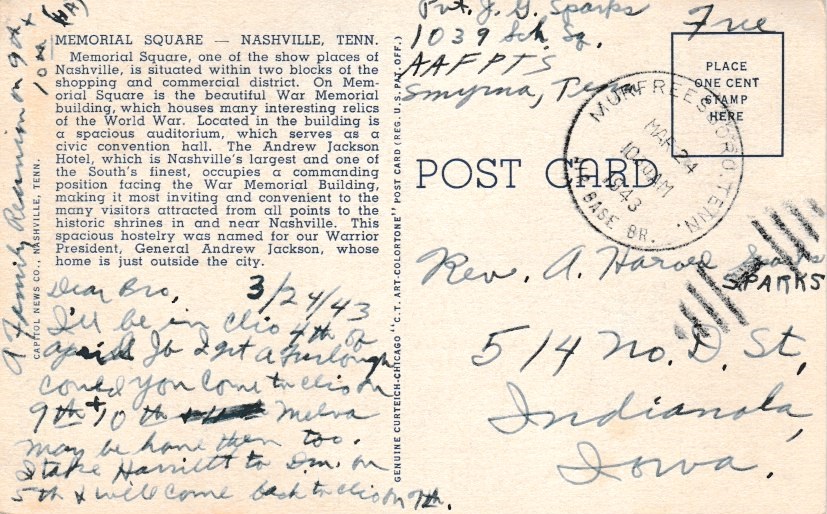 A Family Reunion on 9th +
10th (HA)
MEMORIAL SQUARE — NASHVILLE, TENN.
Memorial Square, one of the show places of
Nashville, is situated within two blocks of the
shopping and commercial district. On Mem-
orial Square is the beautiful War Memorial
building, which houses many interesting relics
of the World War. Located in the building is
a spacious auditorium, which serves as a
civic convention hall. The Andrew Jackson
Hotel, which is Nashville's largest and one of
the South's finest, occupies a commanding
position facing the War Memorial Building,
making it most inviting and convenient to the
many visitors attracted from all points to the
historic shrines in and near Nashville. This
spacious hostelry was named for our Warrior
President, General Andrew Jackson, whose
home is just outside the city.
CAPITOL NEWS CO., NASHVILLE, TENN.
Dear Bro, 3/24/43
I'll be in Clio 4th of
April Jo I get a furlough
could you come to Clio on
9th + 10th Melva
may be home then too.
I take Harriett to D.m. on
5th & will come back to Clio on 7th.
GENUINE CURTEICH-CHICAGO "C.T. ART-COLORTONE" POST CARD (REG. U.S. PAT. OFF.)
Pvt. J. G. Sparks
1039 Sch. Sq.
AAFPTS
Smyrna, Tenn
Free
PLACE
ONE CENT
STAMP
HERE
MURFREESBORO, TENN.
MAR 24
10 AM
1943
AIR BASE BR.
POST CARD
Rev. A. Harold Sparks
SPARKS
514 No. D. St,
Indianola,
Iowa.